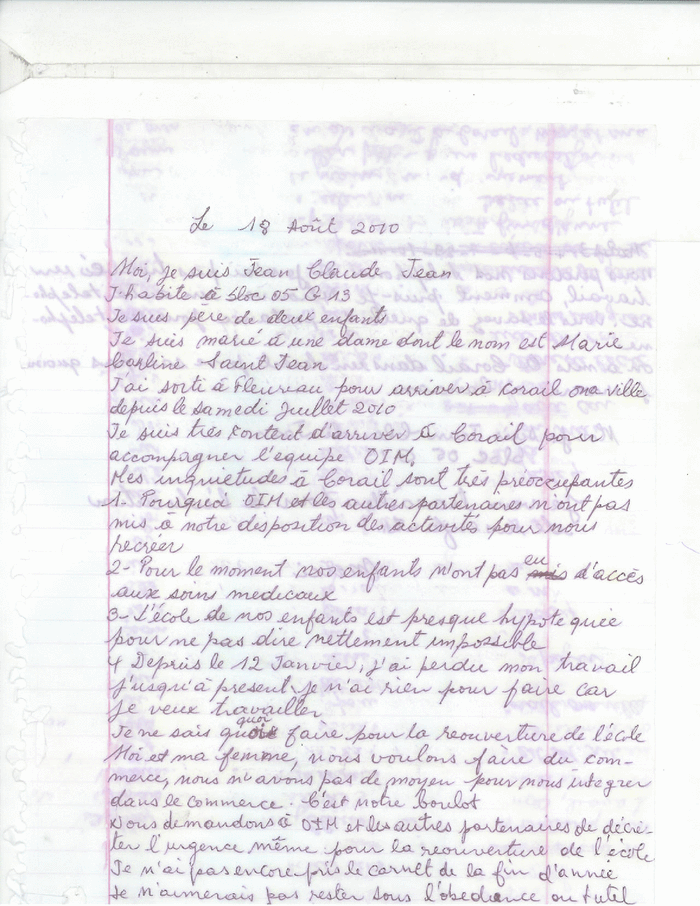 Le 18 Août 2010
Moi, je suis Jean Claude Jean
J'habite à bloc 05 G 13
Je suis père de deux enfants
Je suis marié à une dame dont le nom est Marie
Carline Saint Jean
J'ai sorti à Fleureau pour arriver à Corail ville
depuis le samedi Juillet 2010
Je suis très content d'arriver à Corail pour
accompagner l'equipe OIM.
Mes inquietudes à Corail sont très préoccupantes
1- Pourquoi OIM et les autres partenaires n'ont pas
mis à notre disposition des activités pour nous
recréer
2- Pour le moment nos enfants n'ont pas eu d'accès
aux soins medicaux
3- L'école de nos enfants est presque hypotequée
pour ne pas dire nettement impossible
4 Depuis le 12 Janvier, j'ai perdu mon travail
jusqu'à present, je n'ai rien pour faire car
je veux travailler
Je ne sais quoi faire pour la reouverture de l'école
Moi et ma femme, nous voulons faire du com-
merce, nous n'avons pas de moyen pour nous integrer
dans le commerce. C'est notre boulot
Nous demandons à OIM et les autres partenaires de décré-
ter l'urgence même pour la reouverture de l'école
Je n'ai pas encore pris le carnet de la fin d'année
Je n'aimerais pas rester sous l'obediance ou tutel